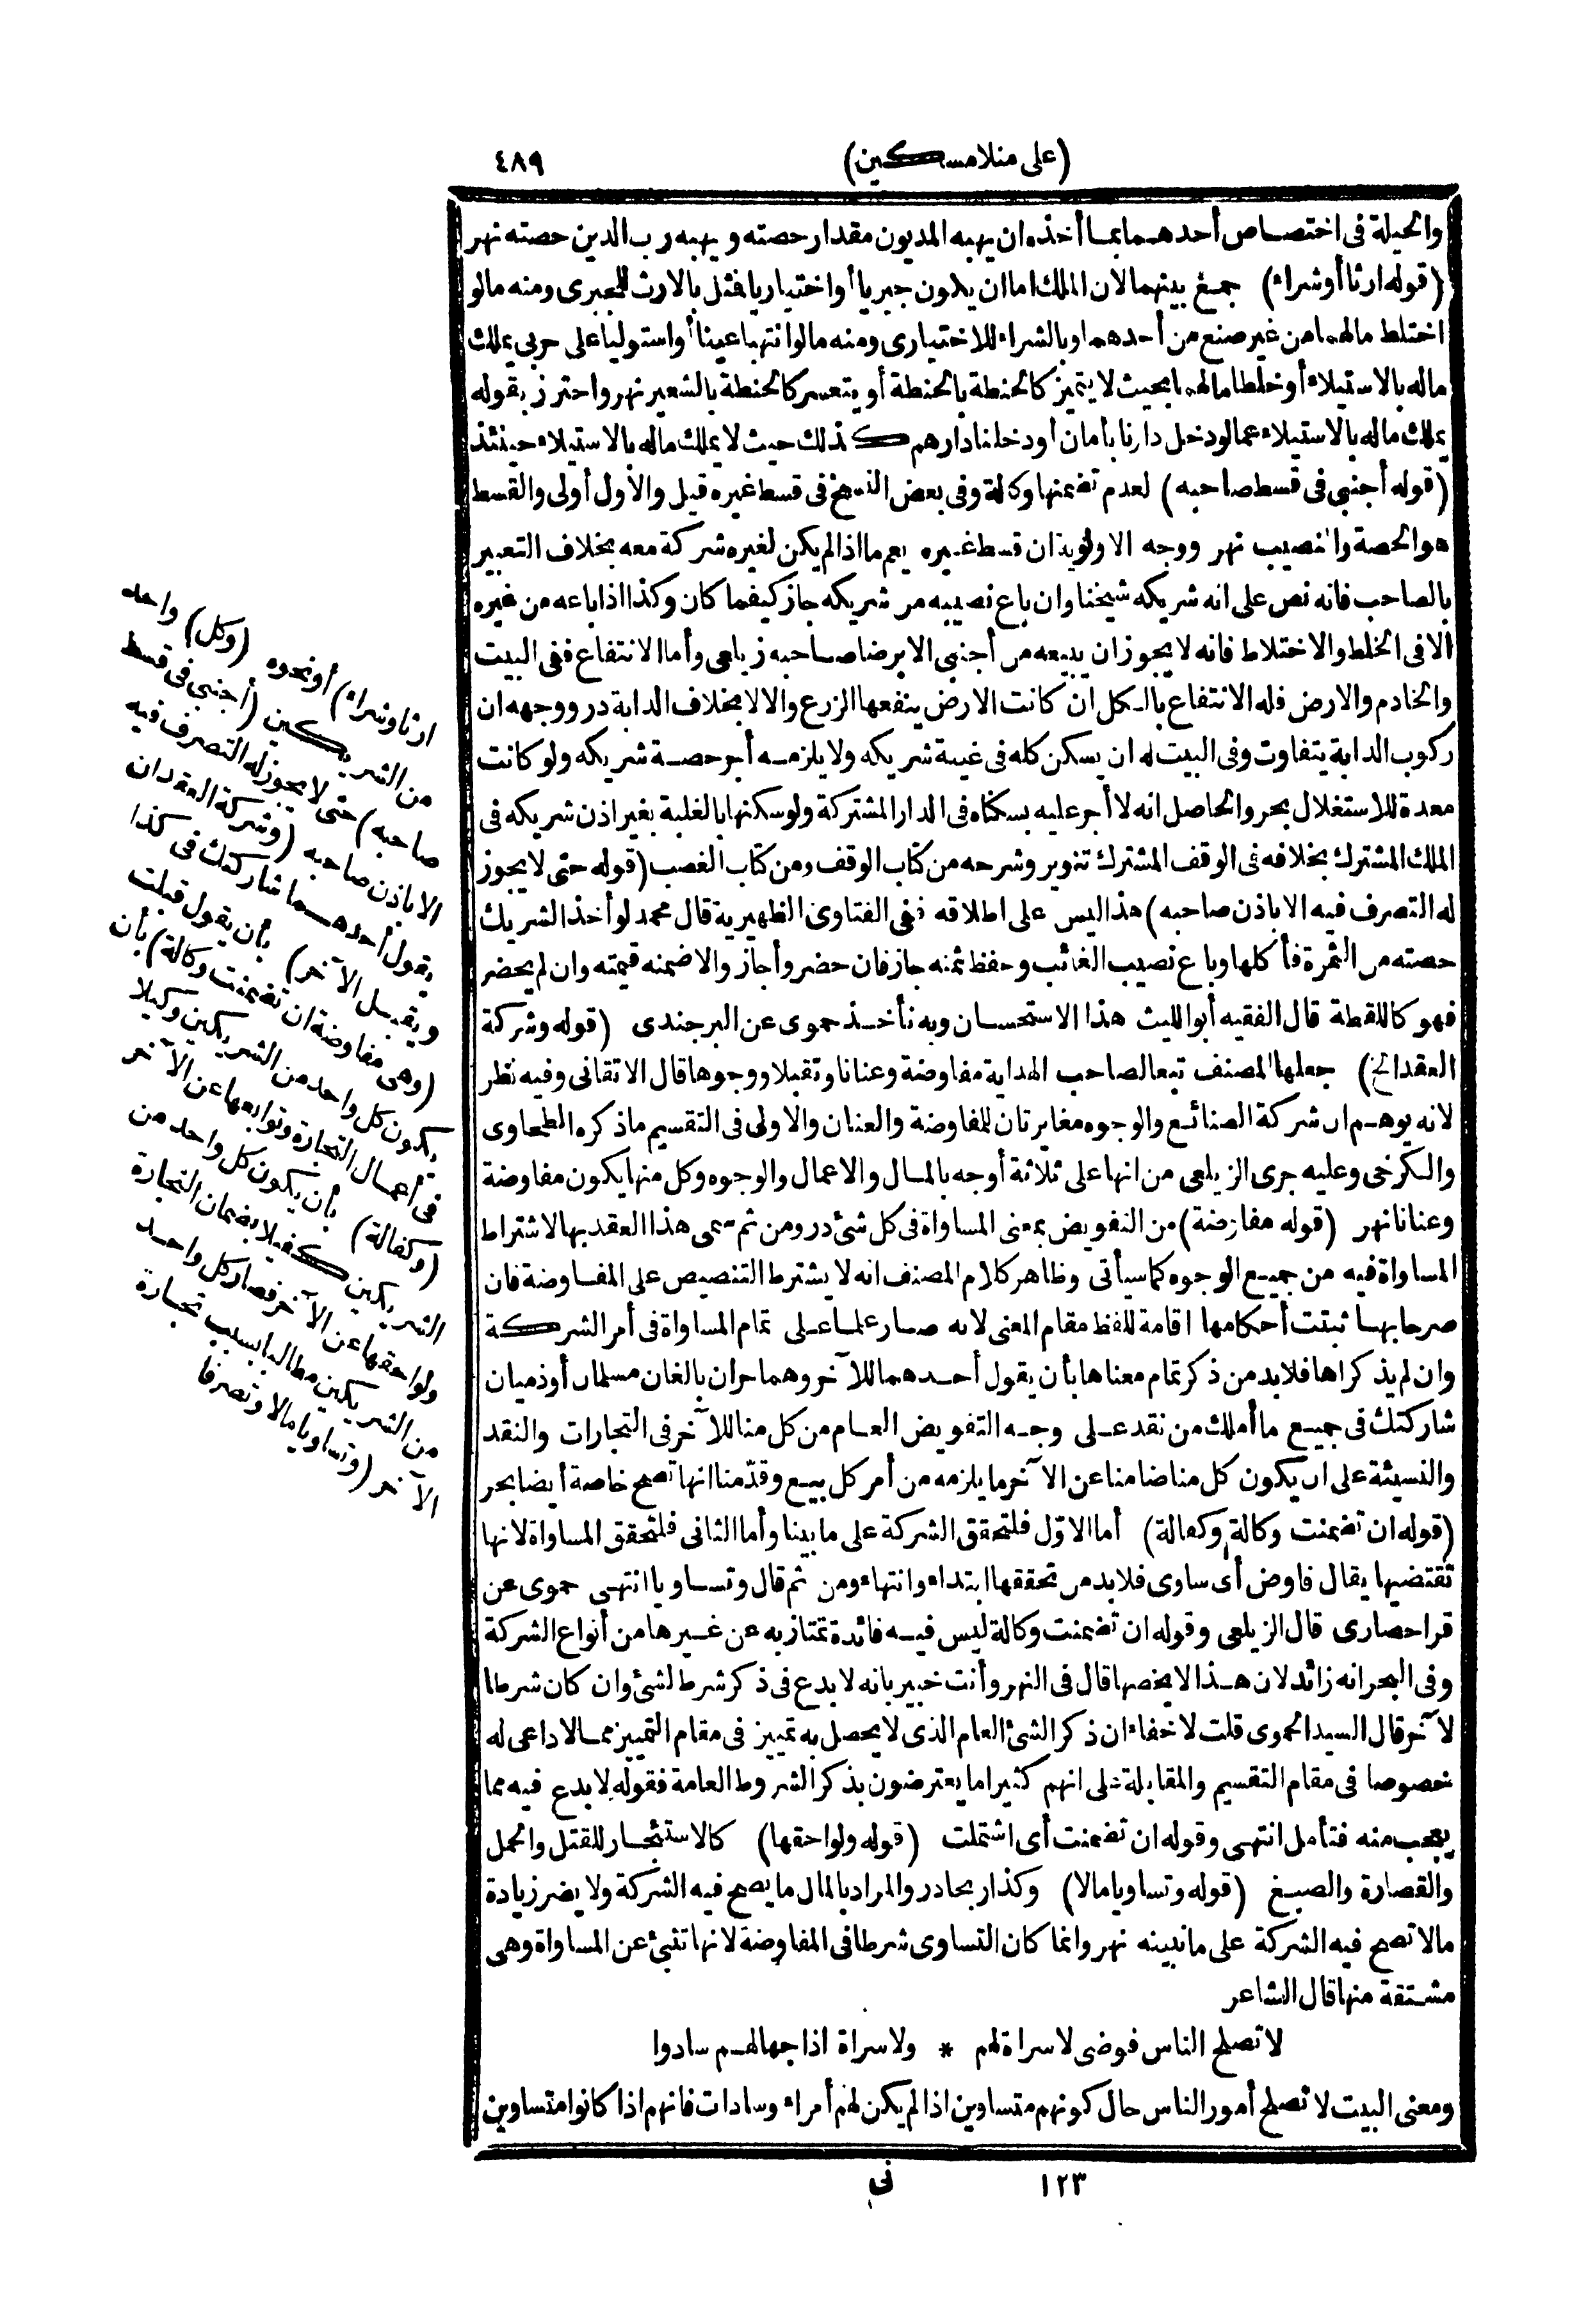 (على منلا مسكين)
٤٨٩
والحيلة فى اختصاص أحدهما بما أخذه ان يهبه المديون مقدار حصته ويهبه رب الدين حصته نهر
(قوله ارثا أوشراء) جمع بينهما لان الملك اما ان يكون جبريا أو اختياريا فمثل بالارث للجبرى ومنه مالو
اختلط مالهما من غير صنع من أحدهما وبالشراء للاختيارى ومنه مالو انتهبا عينا أو استوليا على حربى يملك
ماله بالاستيلاء أو خلطا مالهما بحيث لا يتميز كالحنطة بالحنطة أو يتعسر كالحنطة بالشعير نهر واحترز بقوله
يملك ماله بالاستيلاء عما لو دخل دارنا بأمان أو دخلنا دارهم كذلك حيث لا يملك ماله بالاستيلاء حينئذ
(قوله أجنبى فى قسط صاحبه) لعدم تضمنها وكالة وفى بعض النسخ فى قسط غيره قيل والأول أولى والقسط
هو الحصة والنصيب نهر ووجه الاولوية ان قسط غيره يعم ما اذا لم يكن لغيره شركة معه بخلاف التعبير
بالصاحب فانه نص على انه شريكه شيخنا وان باع نصيبه من شريكه جاز كيفما كان وكذا اذا باعه من غيره
الا فى الخلط والاختلاط فانه لا يجوز ان يبيعه من أجنبى الا برضا صاحبه زيلعى وأما الانتفاع ففى البيت
والخادم والارض فله الانتفاع بالكل ان كانت الارض ينفعها الزرع والا لا بخلاف الدابة درر ووجهه ان
ركوب الدابة يتفاوت وفى البيت له ان يسكن كله فى غيبة شريكه ولا يلزمه أجر حصة شريكه ولو كانت
معدة للاستغلال بحر والحاصل انه لا أجر عليه بسكناه فى الدار المشتركة ولو سكنها بالغلبة بغير اذن شريكه فى
الملك المشترك بخلافه فى الوقف المشترك تنوير وشرحه من كتاب الوقف ومن كتاب الغصب (قوله حتى لا يجوز
له التصرف فيه الا باذن صاحبه) هذا ليس على اطلاقه ففى الفتاوى الظهيرية قال محمد لو أخذ الشريك
حصته من الثمرة فأكلها وباع نصيب الغائب وحفظ ثمنه جاز فان حضر وأجاز والا ضمنه قيمته وان لم يحضر
فهو كاللقطة قال الفقيه أبو الليث هذا الاستحسان وبه نأخذ حموى عن البرجندى (قوله وشركة
العقد الخ) جعلها المصنف تبعا لصاحب الهداية مفاوضة وعنانا وتقبلا ووجوها قال الاتقانى وفيه نظر
لانه يوهم ان شركة الصنائع والوجوه مغايرتان للمفاوضة والعنان والاولى فى التقسيم ما ذكره الطحاوى
والكرخى وعليه جرى الزيلعى من انها على ثلاثة أوجه بالمال والاعمال والوجوه وكل منها يكون مفاوضة
وعنانا نهر (قوله مفاوضة) من التفويض بمعنى المساواة فى كل شئ درر ومن ثم سمى هذا العقد بها لاشتراط
المساواة فيه من جميع الوجوه كما سيأتى وظاهر كلام المصنف انه لا يشترط التنصيص على المفاوضة فان
صرحا بها ثبتت أحكامها اقامة للفظ مقام المعنى لانه صار علما على تمام المساواة فى أمر الشركة
وان لم يذكراها فلا بد من ذكر تمام معناها بأن يقول أحدهما للآخر وهما حران بالغان مسلمان أو ذميان
شاركتك فى جميع ما أملك من نقد على وجه التفويض العام من كل منا للآخر فى التجارات والنقد
والنسيئة على ان يكون كل منا ضامنا عن الآخر ما يلزمه من أمر كل بيع وقدّمنا انها تصح خاصة أيضا بحر
(قوله ان تضمنت وكالة وكفالة) أما الاوّل فلتحقق الشركة على ما بينا وأما الثانى فلتحقق المساواة لانها
تقتضيها يقال فاوض أى ساوى فلا بد من تحققها ابتداء وانتهاء ومن ثم قال وتساويا انتهى حموى عن
قراحصارى قال الزيلعى وقوله ان تضمنت وكالة ليس فيه فائدة تمتاز به عن غيرها من أنواع الشركة
وفى البحر انه زائد لان هذا لا يخصها قال فى النهر وأنت خبير بانه لا بدع فى ذكر شرط لشئ وان كان شرطا
لآخر قال السيد الحموى قلت لا خفاء ان ذكر الشئ العام الذى لا يحصل به تمييز فى مقام التمييز مما لا داعى له
خصوصا فى مقام التقسيم والمقابلة على انهم كثيرا ما يعترضون بذكر الشروط العامة فقوله لا بدع فيه مما
يعجب منه فتأمل انتهى وقوله ان تضمنت أى اشتملت (قوله ولواحقها) كالاستئجار للقتل والحمل
والقصارة والصبغ (قوله وتساويا مالا) وكذا ربحا درر والمراد بالمال ما يصح فيه الشركة ولا يضر زيادة
مالا تصح فيه الشركة على ما نبينه نهر وانما كان التساوى شرطا فى المفاوضة لانها تنبئ عن المساواة وهى
مشتقة منها قال الشاعر
لا تصلح الناس فوضى لا سراة لهم * ولا سراة اذا جهالهم سادوا
ومعنى البيت لا تصلح أمور الناس حال كونهم متساوين اذا لم يكن لهم أمراء وسادات فانهم اذا كانوا متساوين
ارثا وشراء) أو نحوه (وكل) واحد
من الشريكين (أجنبى فى قسط
صاحبه) حتى لا يجوز له التصرف فيه
الا باذن صاحبه (وشركة العقد ان
يقول أحدهما شاركتك فى كذا
ويقبل الآخر) بأن يقول قبلت
(وهى مفاوضة ان تضمنت وكالة) بأن
يكون كل واحد من الشريكين وكيلا
فى أعمال التجارة وتوابعها عن الآخر
(وكفالة) بأن يكون كل واحد من
الشريكين كفيلا بضمان التجارة
ولواحقها عن الآخر فصار كل واحد
من الشريكين مطالبا بسبب تجارة
الآخر (وتساويا مالا وتصرفا
١٢٣
نى